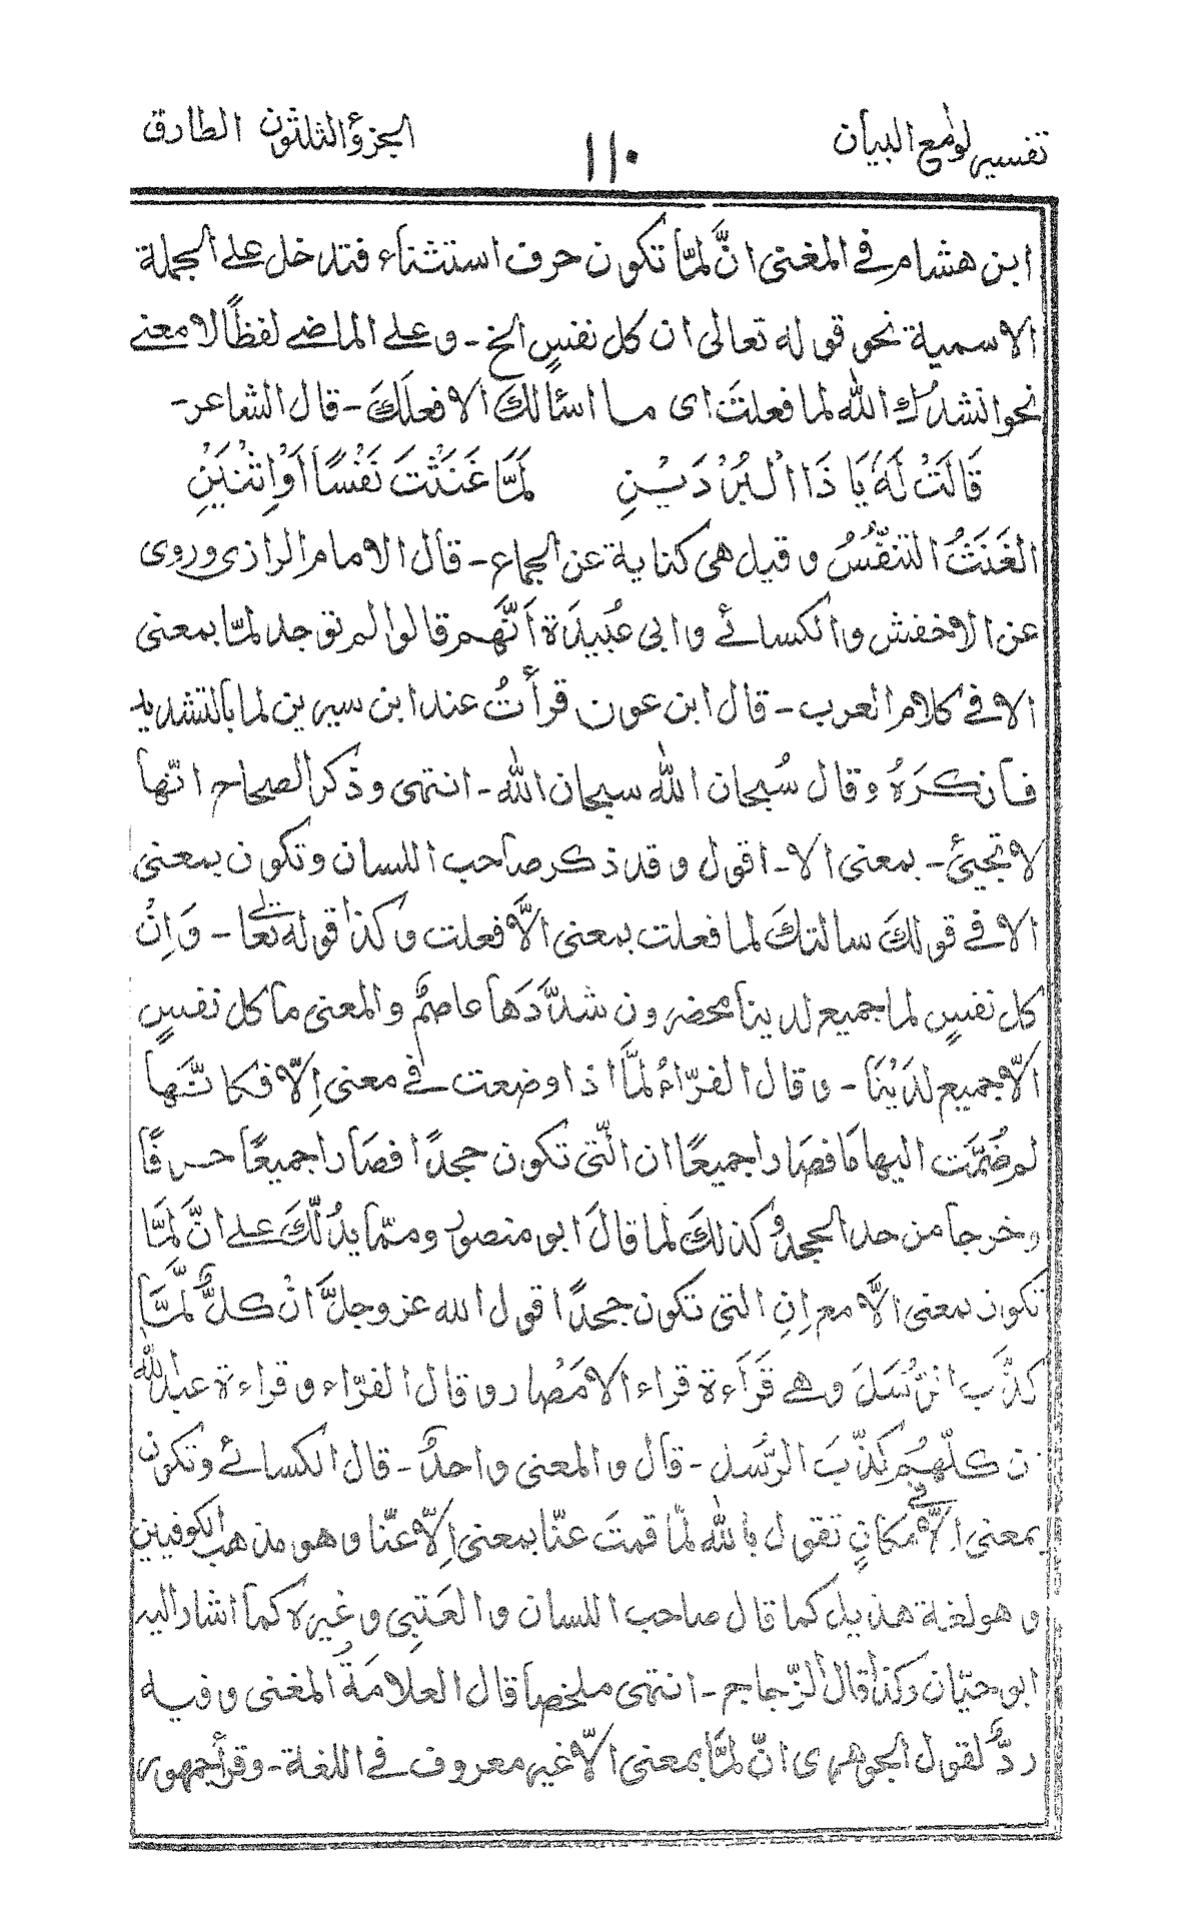 تفسير لوامع البيان
١١٠
الجزؤ الثلثون الطارق
ابن هشام في المغنى انَّ لمّا تكون حرف استثناء فتدخل على الجملة
الاسمية نحو قوله تعالى ان كل نفسٍ الخ - وعلى الماضي لفظًا لا معنے
نحو انشدُك الله لما فعلتَ اى ما اسئالك الا فعلَكَ - قال الشاعر -
قَالَتْ لَهُ يَا ذَا الْبُرْدَيْنِ لَمَّا غَنَثْتَ نَفْسًا اَوْ اِثْنَيْنِ
الغَنَثُ التنفّسُ وقيل هى كناية عن الجماع - قال الامام الرازى وروى
عن الاخفش والكسائے وابى عُبيدَة اَنّهم قالوا لم توجد لمّا بمعنى
الا في كلام العرب - قال ابن عون قرأتُ عند ابن سيرين لما بالتشديد
فانكرَهُ وقال سُبحان الله سبحان الله - انتهى وذكر الصحاح انّها
لا تجيئ - بمعنى الا - اقول وقد ذكر صاحب اللسان وتكون بمعنى
الا في قولك سالتكَ لما فعلت بمعنى الّا فعلت وكذا قوله تعالى - وَاِنْ
كل نفسٍ لما جميع لدينا محضرون شدَّدَها عاصمٌ والمعنى ما كل نفسٍ
الّا جميع لدَيْنَا - وقال الفرّاءُ لمَّا اذا وضعت في معنى اِلّا فكانَّها
لم ضُمَّت اليها مَا فصَارا جميعًا ان الّتى تكون جحدًا فصَارا جميعًا حرفًا
وخرجا من حد الجحدِ وكذلكَ لما قالَ ابو منصور وممّا يدُلّكَ على انَّ لمَّا
تكون بمعنى الَّا مع اِنِ التى تكون جحدًا قول الله عزوجلَّ انْ كلٌّ لمَّا
كذَّب الرُّسُلَ وهے قَرَاءة قراء الامْصَار وقال الفرّاء وقراءة عبد الله
ن كلّهم كَذّبَ الرُّسل - قال والمعنى واحدٌ - قال الكسائے وتكون
بمعنى اِلَّا في مكانٍ تقول بالله لمّا قمتَ عنّا بمعنى اِلّا عنّا وهو مذهب الكوفيين
وهو لغة هذيل كما قال صاحب اللسان والعتبِى وغيره كما اشار اليه
ابو حيّان وكذا قال الزّجاج - انتهى ملخصا قال العلامَةُ المغنى وفيه
ردٌّ لقول الجوهرى انّ لمَّا بمعنى الّا غير معروف في اللغة - وقرأ جمهور